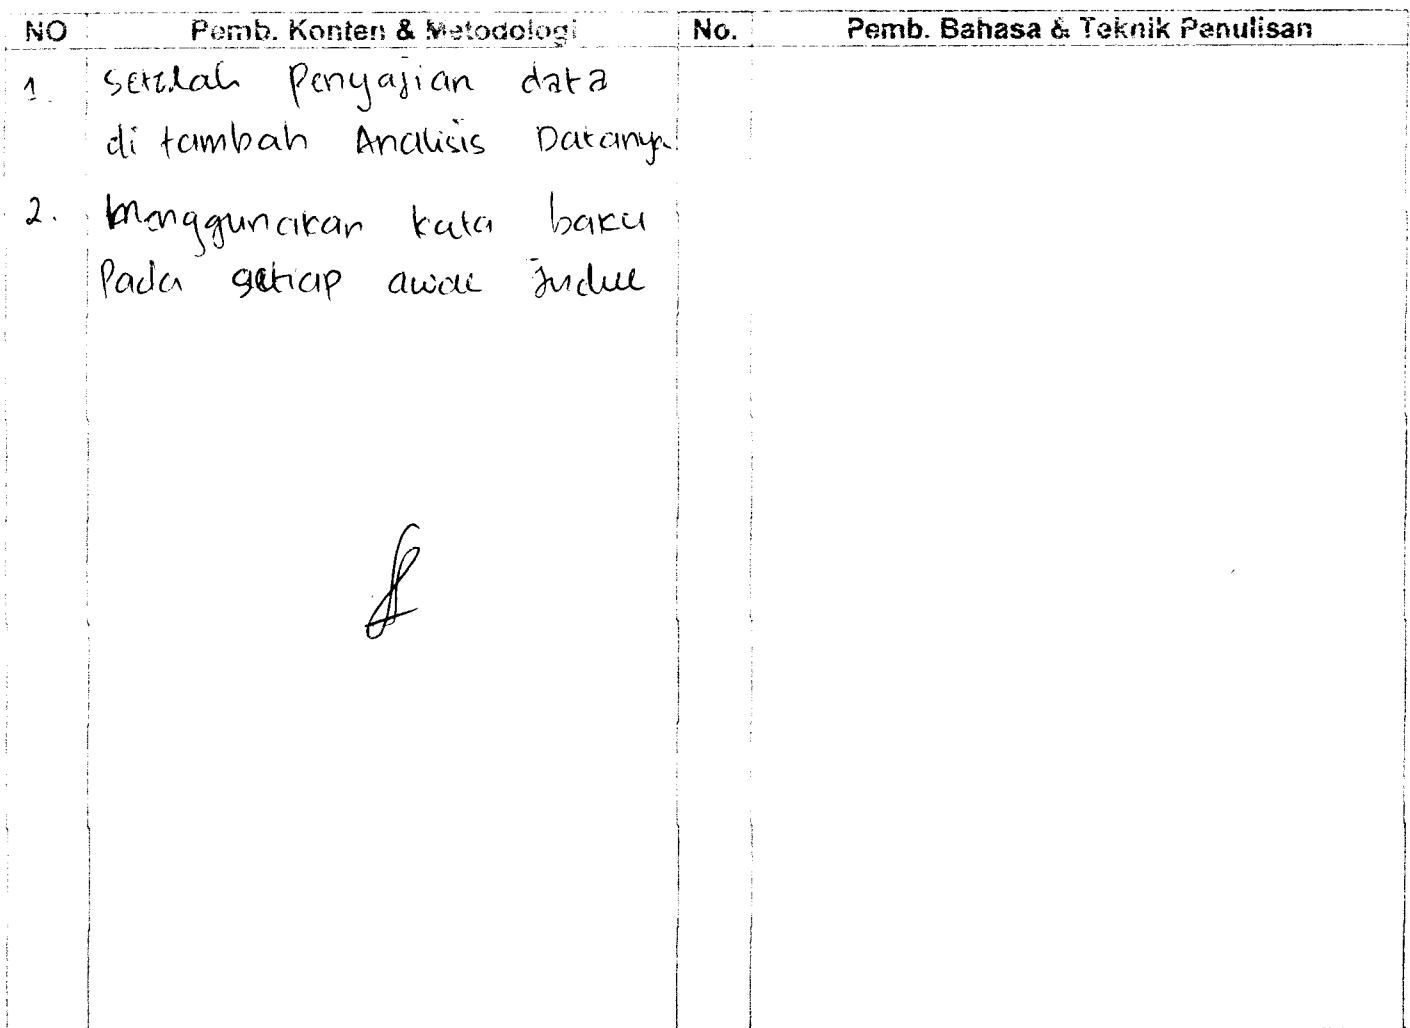 NO Pemb. Konten & Metodologi No. Pemb. Bahasa & Teknik Penulisan
1. setelah Penyajian data
di tambah Analisis Datanya
2. Menggunakan kata baku
Pada setiap awal judul